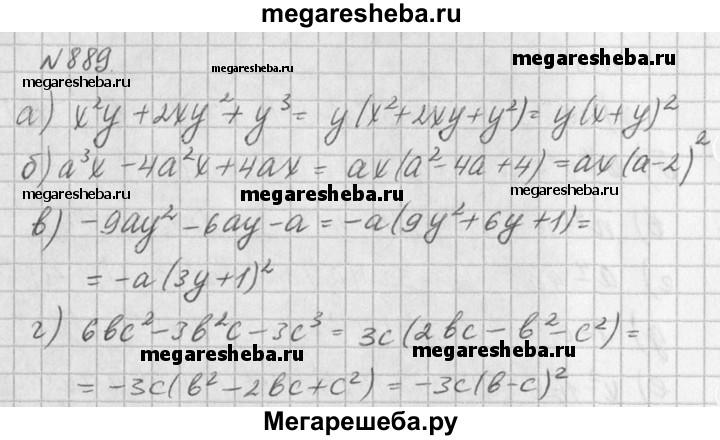 megaresheba.ru
N 889
megaresheba.ru megaresheba.ru megaresheba.ru
а) x²y + 2xy² + y³ = y(x² + 2xy + y²) = y(x + y)²
б) a³x - 4a²x + 4ax = ax(a² - 4a + 4) = ax(a - 2)²
megaresheba.ru megaresheba.ru
в) -9ay² - 6ay - a = -a(9y² + 6y + 1) =
= -a(3y + 1)²
г) 6bc² - 3b²c - 3c³ = 3c(2bc - b² - c²) =
megaresheba.ru megaresheba.ru
= -3c(b² - 2bc + c²) = -3c(b - c)²
Мегарешеба.ру